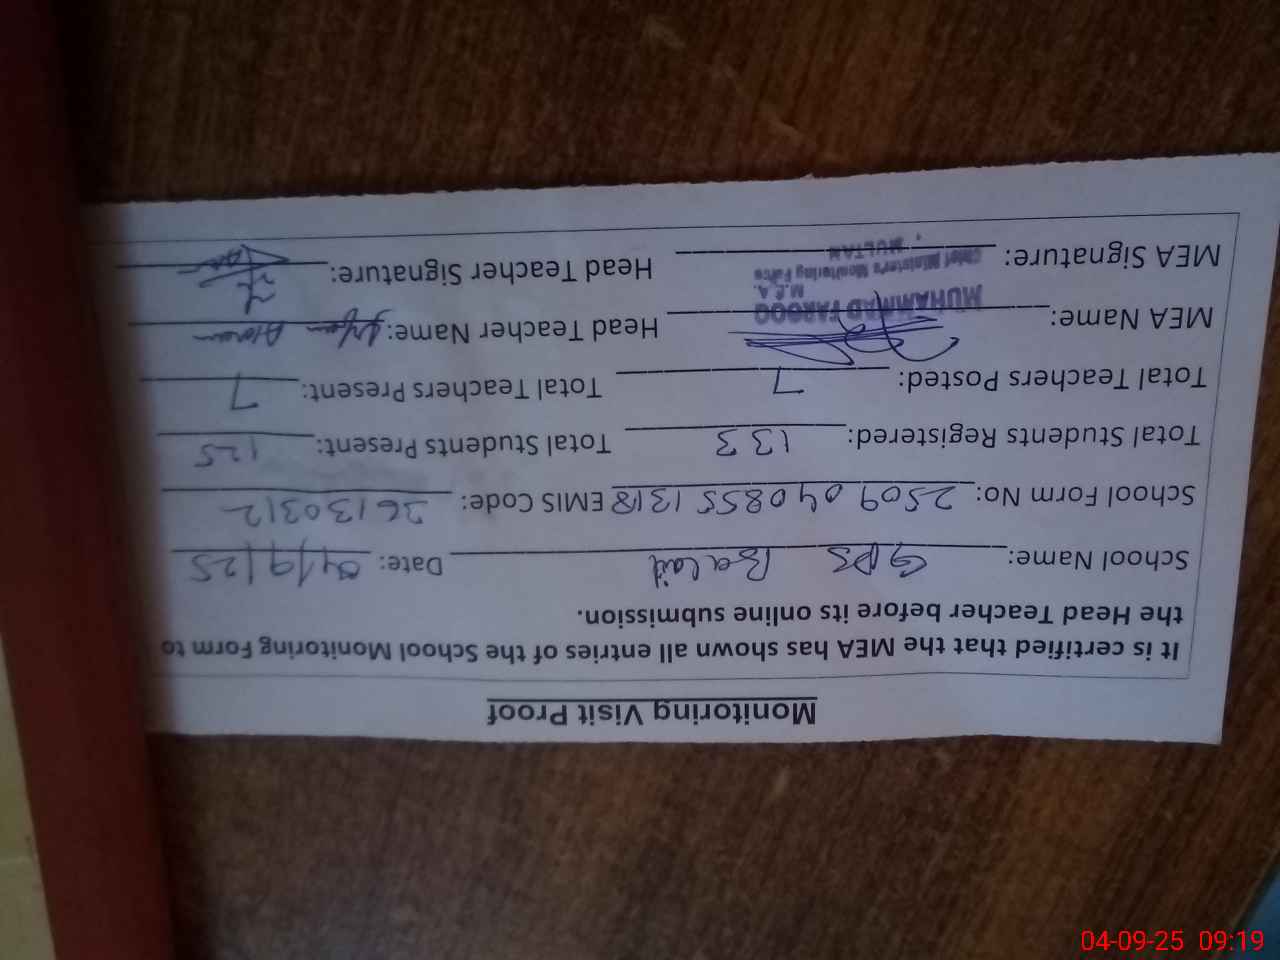 Monitoring Visit Proof
It is certified that the MEA has shown all entries of the School Monitoring Form to
the Head Teacher before its online submission.
School Name: GPS Belait Date: 04/9/25
School Form No: 2509 04 0855 1318 EMIS Code: 36130312
Total Students Registered: 133 Total Students Present: 125
Total Teachers Posted: 7 Total Teachers Present: 7
MEA Name: MUHAMMAD FAROOQ Head Teacher Name:
M.E.A.
Chief Minister's Monitoring Force
MEA Signature: MULTAN Head Teacher Signature:
04-09-25 09:19